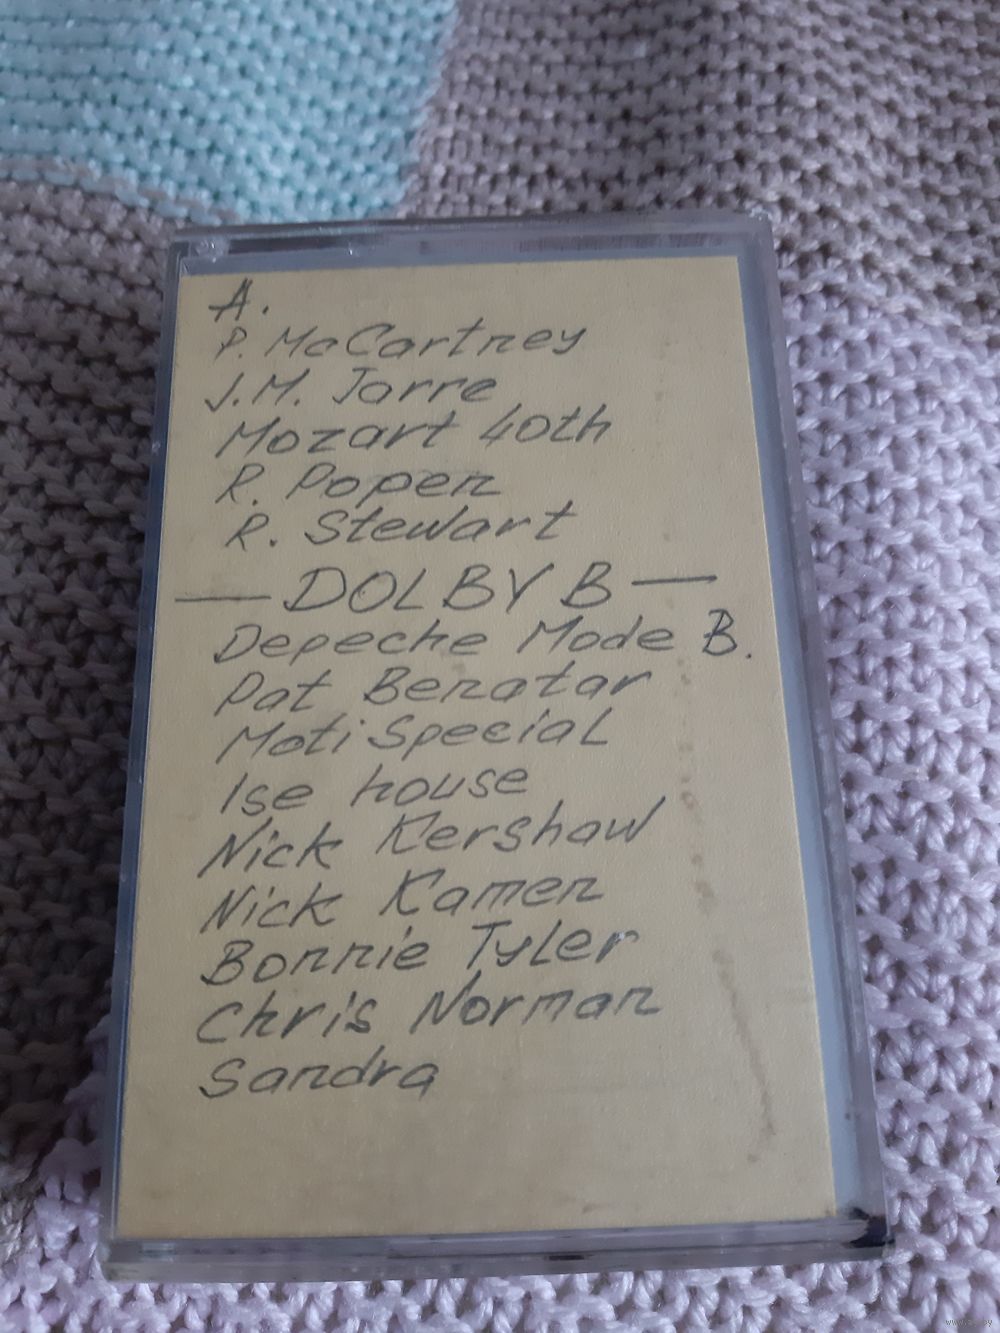 A.
P. McCartney
J.M. Jarre
Mozart 40th
R. Popen
R. Stewart
— DOLBY B —
Depeche Mode B.
Pat Benatar
Moti Special
Ise house
Nick Kershaw
Nick Kamen
Bonnie Tyler
Chris Norman
Sandra